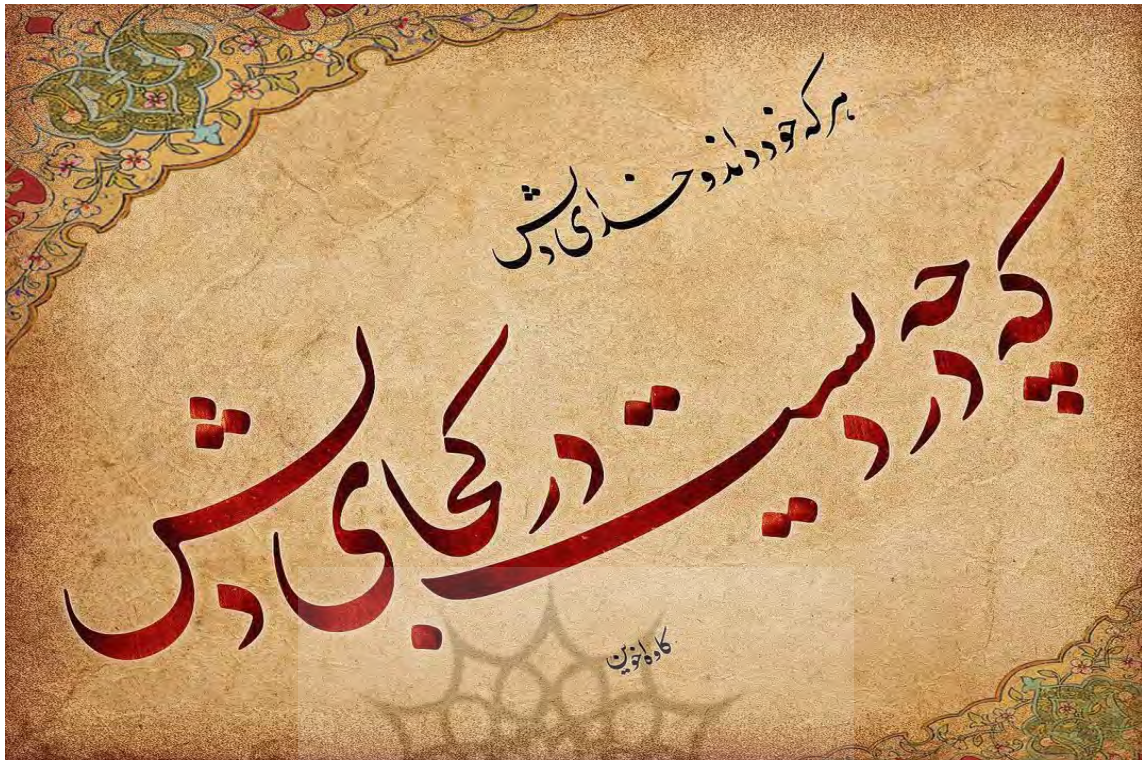 هر که خود داند و خدای دلش
که چه دردیست در کجای دلش
کاوه اخوین